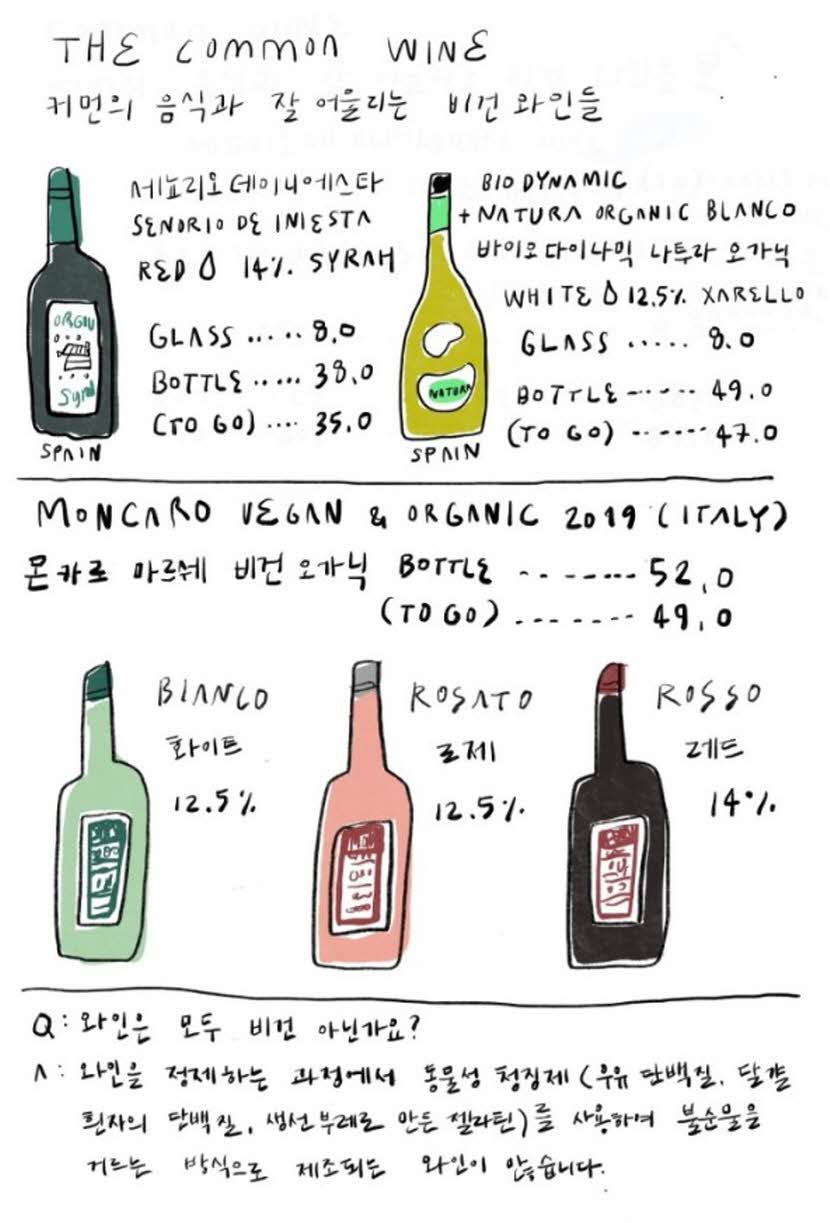 THE COMMON WINE
커먼의 음식과 잘 어울리는 비건 와인들
세뇨리오 데 이니에스타
SENORIO DE INIESTA
RED 14% SYRAH
GLASS ..... 8.0
BOTTLE ..... 38.0
(TO GO) .... 35.0
ORGANI
Syrah
SPAIN
BIO DYNAMIC
+ NATURA ORGANIC BLANCO
바이오 다이나믹 나투라 오가닉
WHITE 12.5% XARELLO
GLASS ..... 8.0
BOTTLE ------ 49.0
(TO GO) ------- 47.0
NATURA
SPAIN
MONCARO VEGAN & ORGANIC 2019 (ITALY)
몬카로 마르쉐 비건 오가닉 BOTTLE -------- 52.0
(TO GO) -------- 49.0
BIANCO
화이트
12.5%
ROSATO
로제
12.5%
ROSSO
레드
14%
Q: 와인은 모두 비건 아닌가요?
A: 와인을 정제하는 과정에서 동물성 청징제 (우유 단백질, 달걀
흰자의 단백질, 생선 부레로 만든 젤라틴)를 사용하여 불순물을
거르는 방식으로 제조되는 와인이 많습니다.